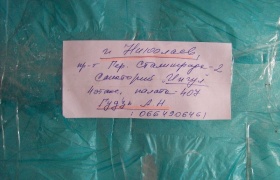 г. Николаев,
пр-т Гер. Сталинграда-2
Санаторий Ингул
4 этаж, палата 407
Гудзь А Н
0664206461